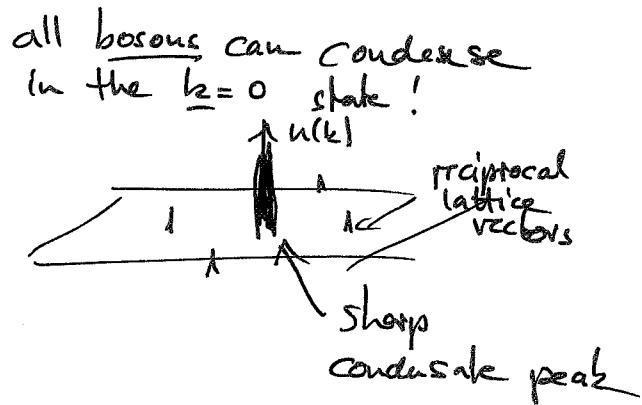 all bosons can condense
in the k = 0 state !
n(k)
reciprocal
lattice
vectors
sharp
condensate peak